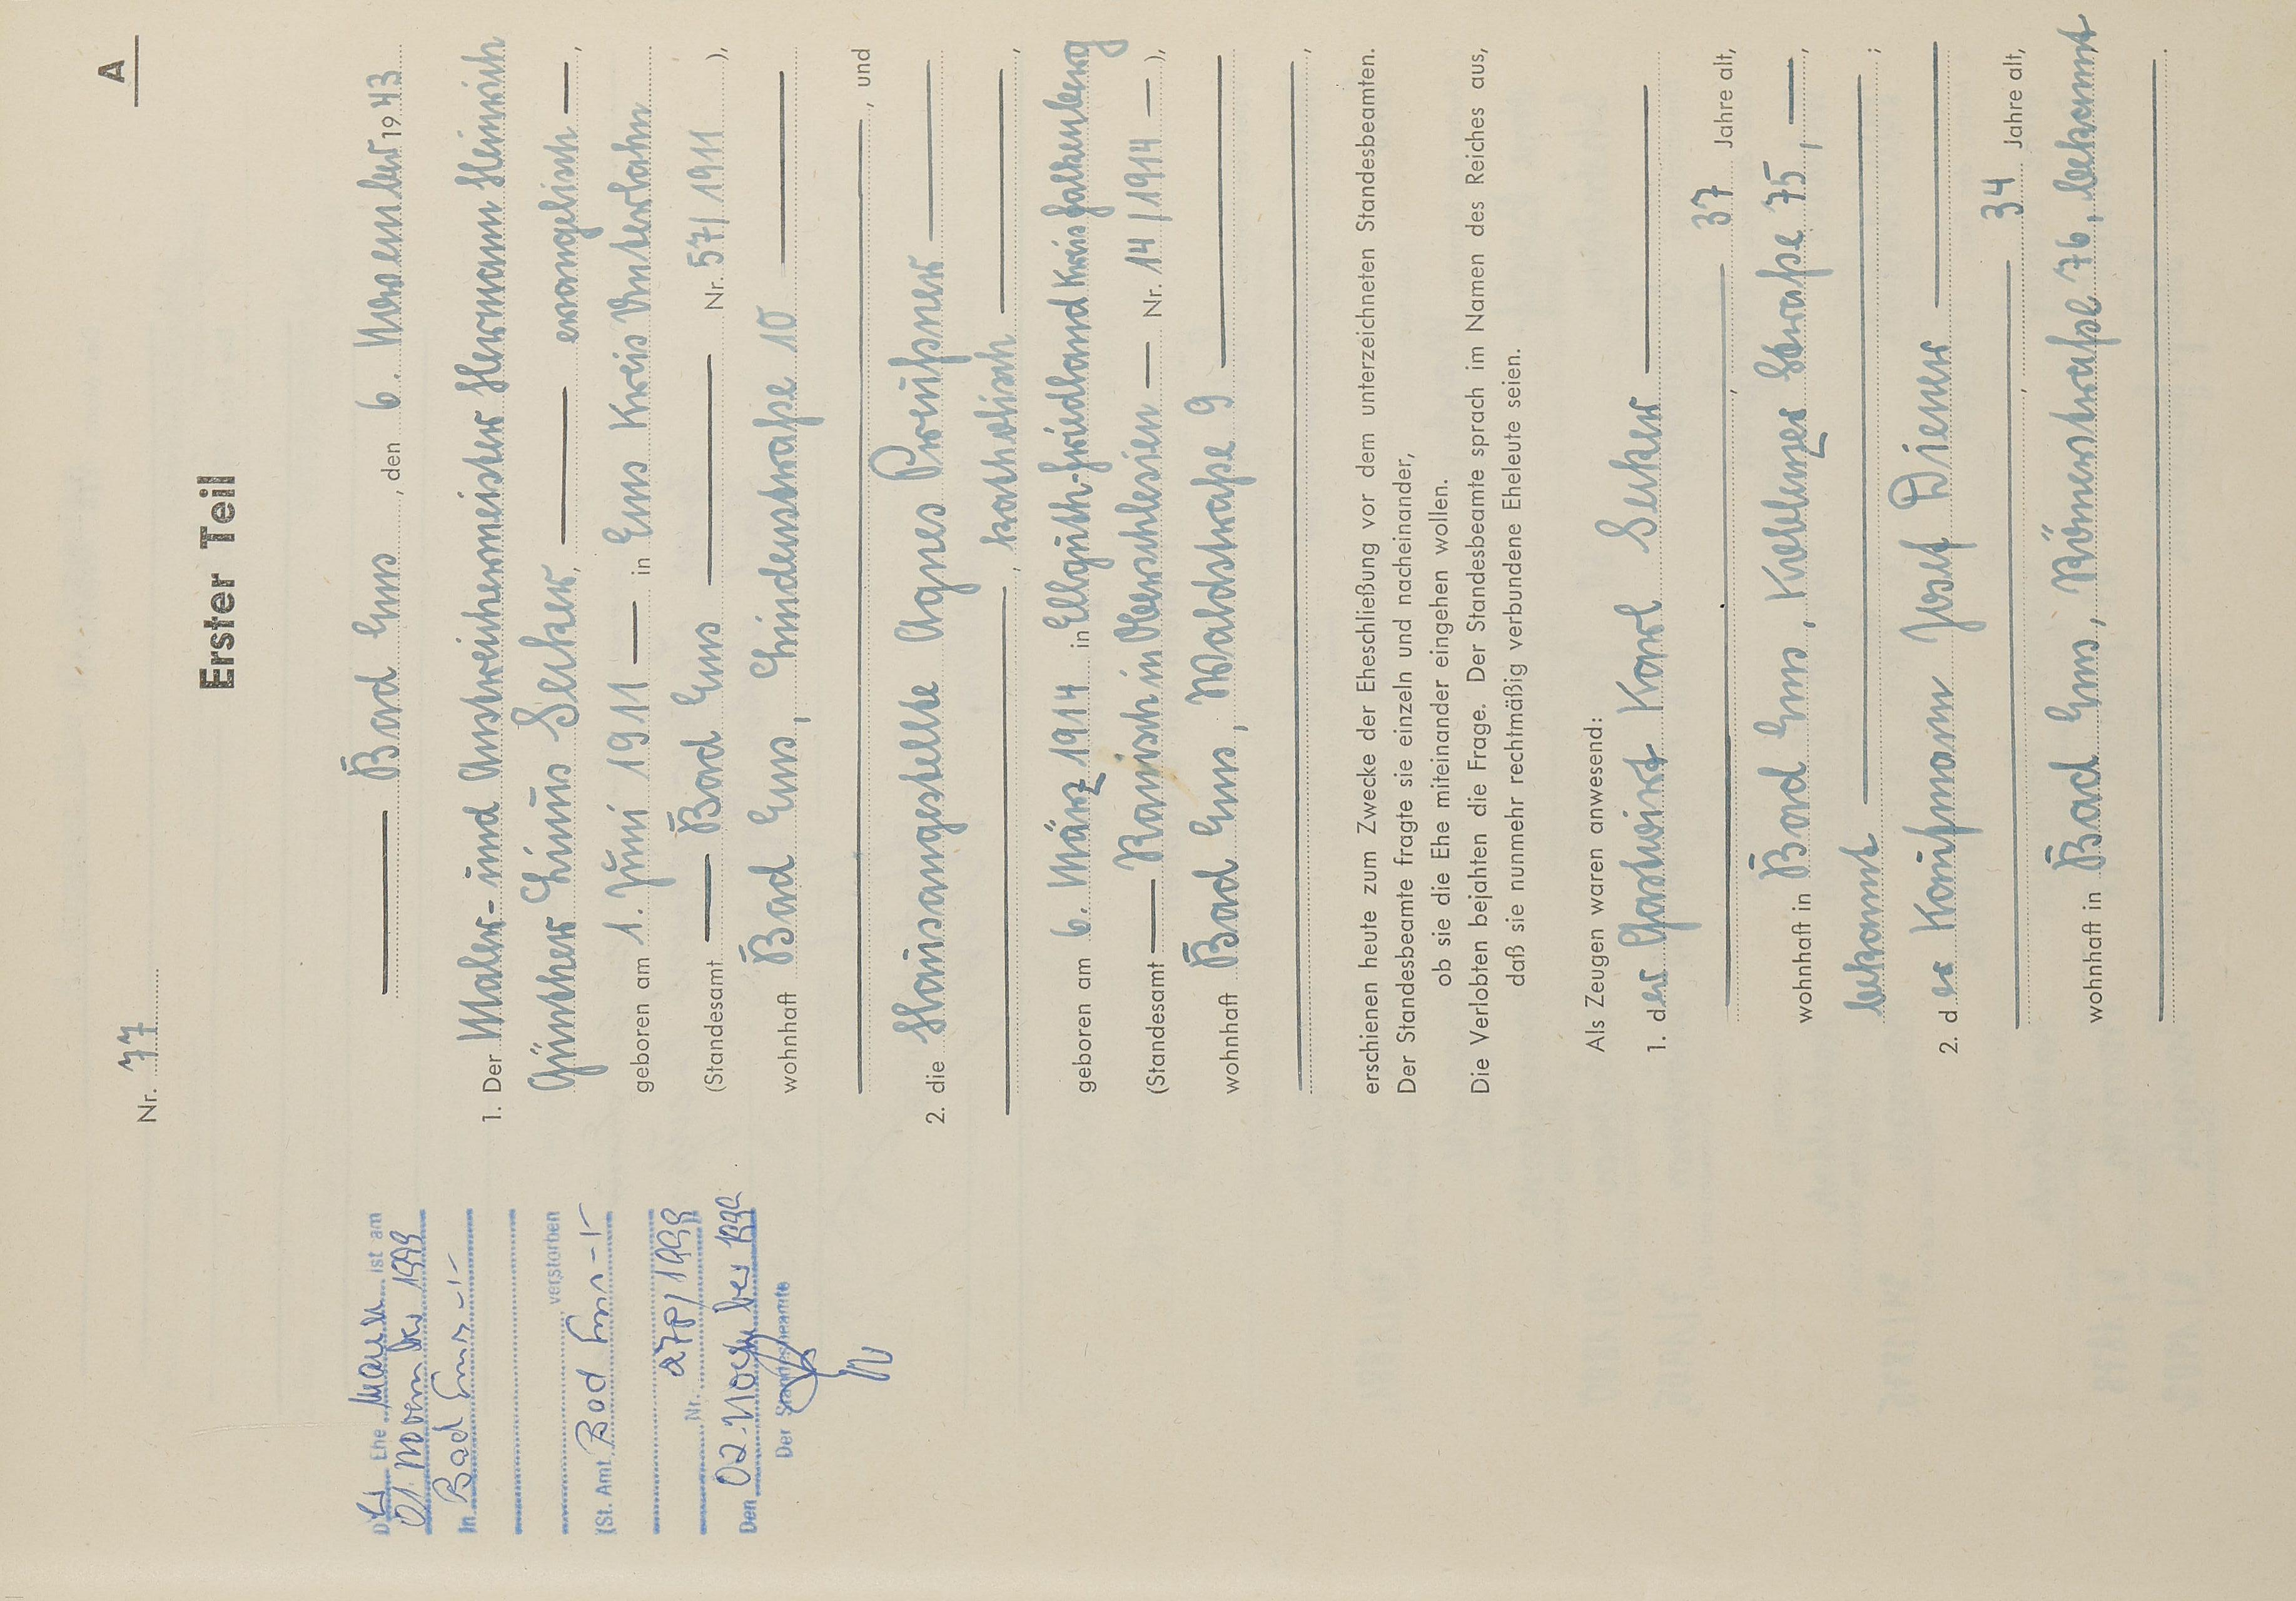 A
Nr. 77
Erster Teil
Bad Ems, den 6. November 1943
1. Der Maler- und Anstreichermeister Hermann Heinrich
Günther Linus Secker, — evangelisch —,
geboren am 1. Juni 1911 — in Ems Kreis Unterlahn
(Standesamt — Bad Ems — Nr. 57/1911 ),
wohnhaft Bad Ems, Lindenstraße 10
, und
2. die Hausangestellte Agnes Preußner —
, katholisch —,
geboren am 6. März 1914 in Ellguth-Friedland Kreis Falkenberg
(Standesamt — Ranisch in Oberschlesien — Nr. 14/1914 — ),
wohnhaft Bad Ems, Waldstraße 9 —
,
erschienen heute zum Zwecke der Eheschließung vor dem unterzeichneten Standesbeamten.
Der Standesbeamte fragte sie einzeln und nacheinander,
ob sie die Ehe miteinander eingehen wollen.
Die Verlobten bejahten die Frage. Der Standesbeamte sprach im Namen des Reiches aus,
daß sie nunmehr rechtmäßig verbundene Eheleute seien.
Als Zeugen waren anwesend:
1. der Gastwirt Karl Secker —
, 37 Jahre alt,
wohnhaft in Bad Ems, Koblenzer Straße 75, —,
bekannt — ;
2. der Kaufmann Josef Diener —
, 34 Jahre alt,
wohnhaft in Bad Ems, Römerstraße 76, bekannt
.
Der Ehemann ist am
01. November 1999
In Bad Ems -/-
verstorben
(St. Amt Bad Ems -/-
Nr. 278/1999
Den 02. November 1999
Der Standesbeamte